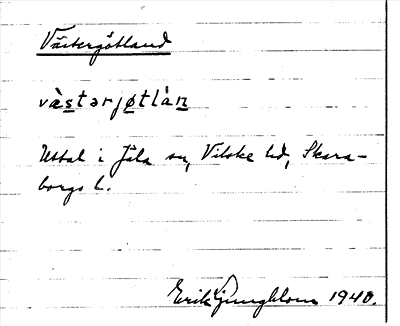 Västergötland
västərjøtlàn
Uttal i Jäla sn, Vilske hd, Skara-
borgs l.
Erik Ljungblom 1940.